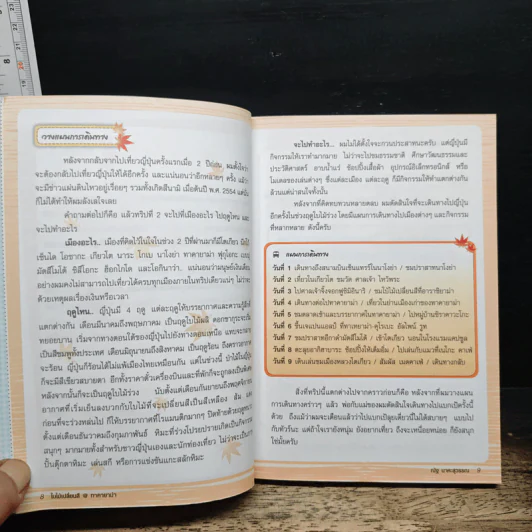 วางแผนการเดินทาง
หลังจากกลับจากไปเที่ยวญี่ปุ่นครั้งแรกเมื่อ 2 ปีก่อน ผมตั้งใจว่า
จะต้องกลับไปเที่ยวญี่ปุ่นให้ได้อีกครั้ง และแน่นอนว่าอีกหลายๆ ครั้ง แม้ว่า
จะมีข่าวแผ่นดินไหวอยู่เรื่อยๆ รวมทั้งเกิดสึนามิ เมื่อต้นปี พ.ศ. 2554 แต่นั่น
ก็ไม่ได้ทำให้ผมลังเลใจเลย
คำถามต่อไปก็คือ แล้วทริปที่ 2 จะไปที่เมืองอะไร ไปฤดูไหน และ
จะไปทำอะไร
เมืองอะไร.. เมืองที่คิดไว้ในใจในช่วง 2 ปีที่ผ่านมาก็มีโตเกียว นิกโก้
เซ็นได โอซากะ เกียวโต นาระ โกเบ นาโงย่า ทาคายาม่า ฟุกุโอกะ
มัตสึโมโต้ ชิสึโอกะ ฮอกไกโด และโอกินาว่า แน่นอนว่ามนุษย์เงินเดือน
อย่างผมคงไม่สามารถไปเที่ยวได้ครบทุกเมืองภายในทริปเดียวแน่ๆ ไม่ว่าจะ
ด้วยเหตุผลเรื่องเงินหรือเวลา
ฤดูไหน.. ญี่ปุ่นมี 4 ฤดู แต่ละฤดูให้บรรยากาศและความรู้สึก
แตกต่างกัน เดือนมีนาคมถึงพฤษภาคม เป็นฤดูใบไม้ผลิ ดอกซากุระจะเริ่ม
ทยอยบาน เริ่มจากทางตอนใต้ของญี่ปุ่นไปยังทางตอนเหนือ แทบจะกลาย
เป็นสีชมพูทั้งประเทศ เดือนมิถุนายนถึงสิงหาคม เป็นฤดูร้อน ถึงคราวอากาศ
จะร้อน ญี่ปุ่นก็ร้อนได้ไม่แพ้เมืองไทยเหมือนกัน แต่ในช่วงนี้ ป่าไม้ในญี่ปุ่น
ก็จะมีสีเขียวสบายตา อีกทั้งราคาตั๋วเครื่องบินและที่พักก็จะถูกลงเป็นพิเศษ
หลังจากนั้นก็จะเป็นฤดูใบไม้ร่วง นับตั้งแต่เดือนกันยายนถึงพฤศจิกายน
อากาศที่เริ่มเย็นลงบวกกับใบไม้ที่จะเปลี่ยนสีเป็นสีเหลือง ส้ม และ
ก่อนที่จะร่วงหล่นไป ก็ให้บรรยากาศที่โรแมนติกมากๆ ปิดท้ายด้วยฤดูหนาว
ตั้งแต่เดือนธันวาคมถึงกุมภาพันธ์ หิมะที่ร่วงโปรยปรายก็เป็นกิจกรรม
สนุกๆ มากมายทั้งสำหรับชาวญี่ปุ่นเองและนักท่องเที่ยว ไม่ว่าจะเป็นการ
ปั้นตุ๊กตาหิมะ เล่นสกี หรือการแข่งขันแกะสลักหิมะ
8 ใบไม้เปลี่ยนสี @ ทาคายาม่า
จะไปทำอะไร.. ผมไม่ได้ตั้งใจจะกวนประสาทนะครับ แต่ญี่ปุ่นมี
กิจกรรมให้เราทำมากมาย ไม่ว่าไปชมธรรมชาติ ศึกษาวัฒนธรรมและ
ประวัติศาสตร์ อาบน้ำแร่ ช้อปปิ้งเสื้อผ้า อุปกรณ์อิเล็กทรอนิกส์ หรือ
โมเดลของเล่นต่างๆ ซึ่งแต่ละเมือง แต่ละฤดู ก็มีกิจกรรมให้ทำแตกต่างกัน
ล้วนแต่น่าสนใจทั้งนั้น
หลังจากที่คิดทบทวนหลายตลบ ผมตัดสินใจที่จะเดินทางไปญี่ปุ่น
อีกครั้งในช่วงฤดูใบไม้ร่วง โดยมีแผนการเดินทางไปเมืองต่างๆ และกิจกรรม
ที่หลากหลาย ดังนี้ครับ
แผนการเดินทาง
วันที่ 1 เดินทางถึงสนามบินเซ็นแทรร์ในนาโงย่า / ชมปราสาทนาโงย่า
วันที่ 2 เที่ยวในเกียวโต ชมวัด ศาลเจ้า ไหว้พระ
วันที่ 3 ไปศาลเจ้าจิ้งจอกฟูชิมิอินาริ / ชมใบไม้เปลี่ยนสีที่อาราชิยาม่า
วันที่ 4 เดินทางต่อไปทาคายาม่า / เที่ยวในย่านเมืองเก่าของทาคายาม่า
วันที่ 5 ชมตลาดเช้าและบรรยากาศในทาคายาม่า / ไปหมู่บ้านชิราคาวะโกะ
วันที่ 6 ขึ้นเจแปนแอลป์ ที่ทาเทยาม่า-คุโรเบะ อัลไพน์ รูท
วันที่ 7 ชมปราสาทอีกาดำมัตสึโมโต้ / เข้าโตเกียว นอนในโรงแรมแคปซูล
วันที่ 8 ตะลุยอากิฮาบาระ ช้อปปิ้งให้เต็มอิ่ม / ไปเล่นกับแมวที่เนโกะ คาเฟ่
วันที่ 9 เดินเล่นชมเมืองหลวงโตเกียว / สัมผัส เมดคาเฟ่ / เดินทางกลับ
สิ่งที่ทริปนี้แตกต่างไปจากคราวก่อนก็คือ หลังจากที่ผมวางแผน
การเดินทางคร่าวๆ แล้ว พ่อกับแม่ของผมตัดสินใจเดินทางไปแบกเป้ครั้งนี้
ด้วย ถึงแม้ว่าผมจะเตือนแล้วว่าไปแบกเป้ลุยเดี่ยวนี้ไม่ได้สบายๆ แบบไป
กับทัวร์นะ แต่ถ้าใจเรายังหนุ่ม ยังอยากเที่ยว ถึงจะเหนื่อยหน่อย ก็ยังสนุก
ใช่มั้ยครับ
9